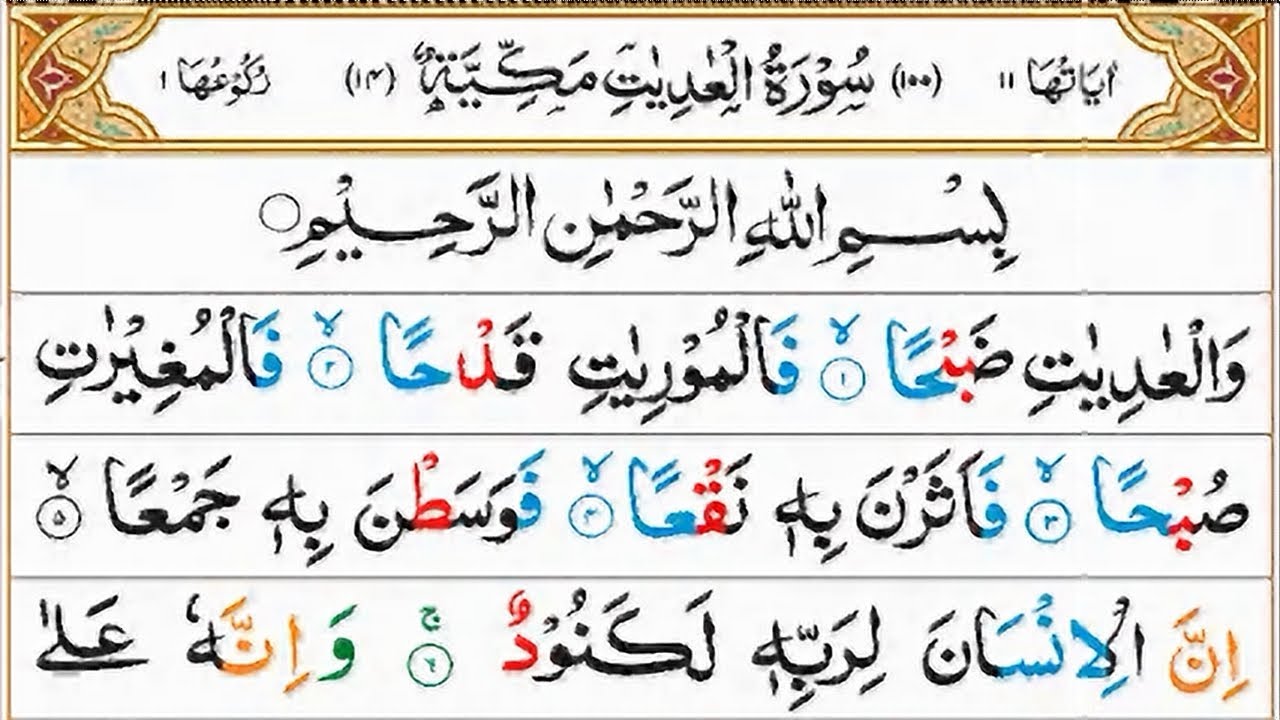 اٰيَاتُهَا ١١ (١٠٠) سُوْرَةُ الْعٰدِيٰتِ مَكِّيَّةٌ (١٤) رُكُوْعُهَا ١
بِسْمِ اللّٰهِ الرَّحْمٰنِ الرَّحِيْمِ ۝
وَالْعٰدِيٰتِ ضَبْحًا ۙ﴿١﴾ فَالْمُوْرِيٰتِ قَدْحًا ۙ﴿٢﴾ فَالْمُغِيْرٰتِ
صُبْحًا ۙ﴿٣﴾ فَاَثَرْنَ بِهٖ نَقْعًا ۙ﴿٤﴾ فَوَسَطْنَ بِهٖ جَمْعًا ۙ﴿٥﴾
اِنَّ الْاِنْسَانَ لِرَبِّهٖ لَكَنُوْدٌ ۚ﴿٦﴾ وَاِنَّهٗ عَلٰى